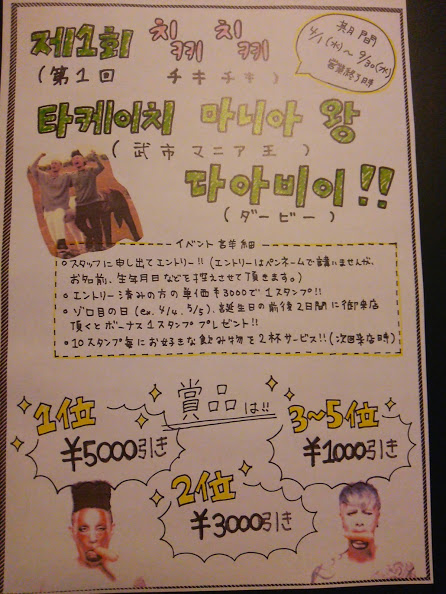 제1회 치키 치키
(第1回 チキチキ)
期間
4/1(水)〜9/30(水)
営業終了時
타케이치 마니아 왕
(武市マニア王)
다아비이!!
(ダービー)
イベント詳細
○スタッフに申し出てエントリー!!(エントリーはペンネームで構いませんが、
お名前、生年月日などを控えさせて頂きます。)
○エントリー済みの方の単価¥3000で1スタンプ!!
○ゾロ目の日(ex. 4/4, 5/5)、誕生日の前後2日間に御来店
頂くとボーナス1スタンププレゼント!!
○10スタンプ毎にお好きな飲み物を2杯サービス!!(次回来店時)
賞品は!!
1位
¥5000引き
3~5位
¥1000引き
2位
¥3000引き